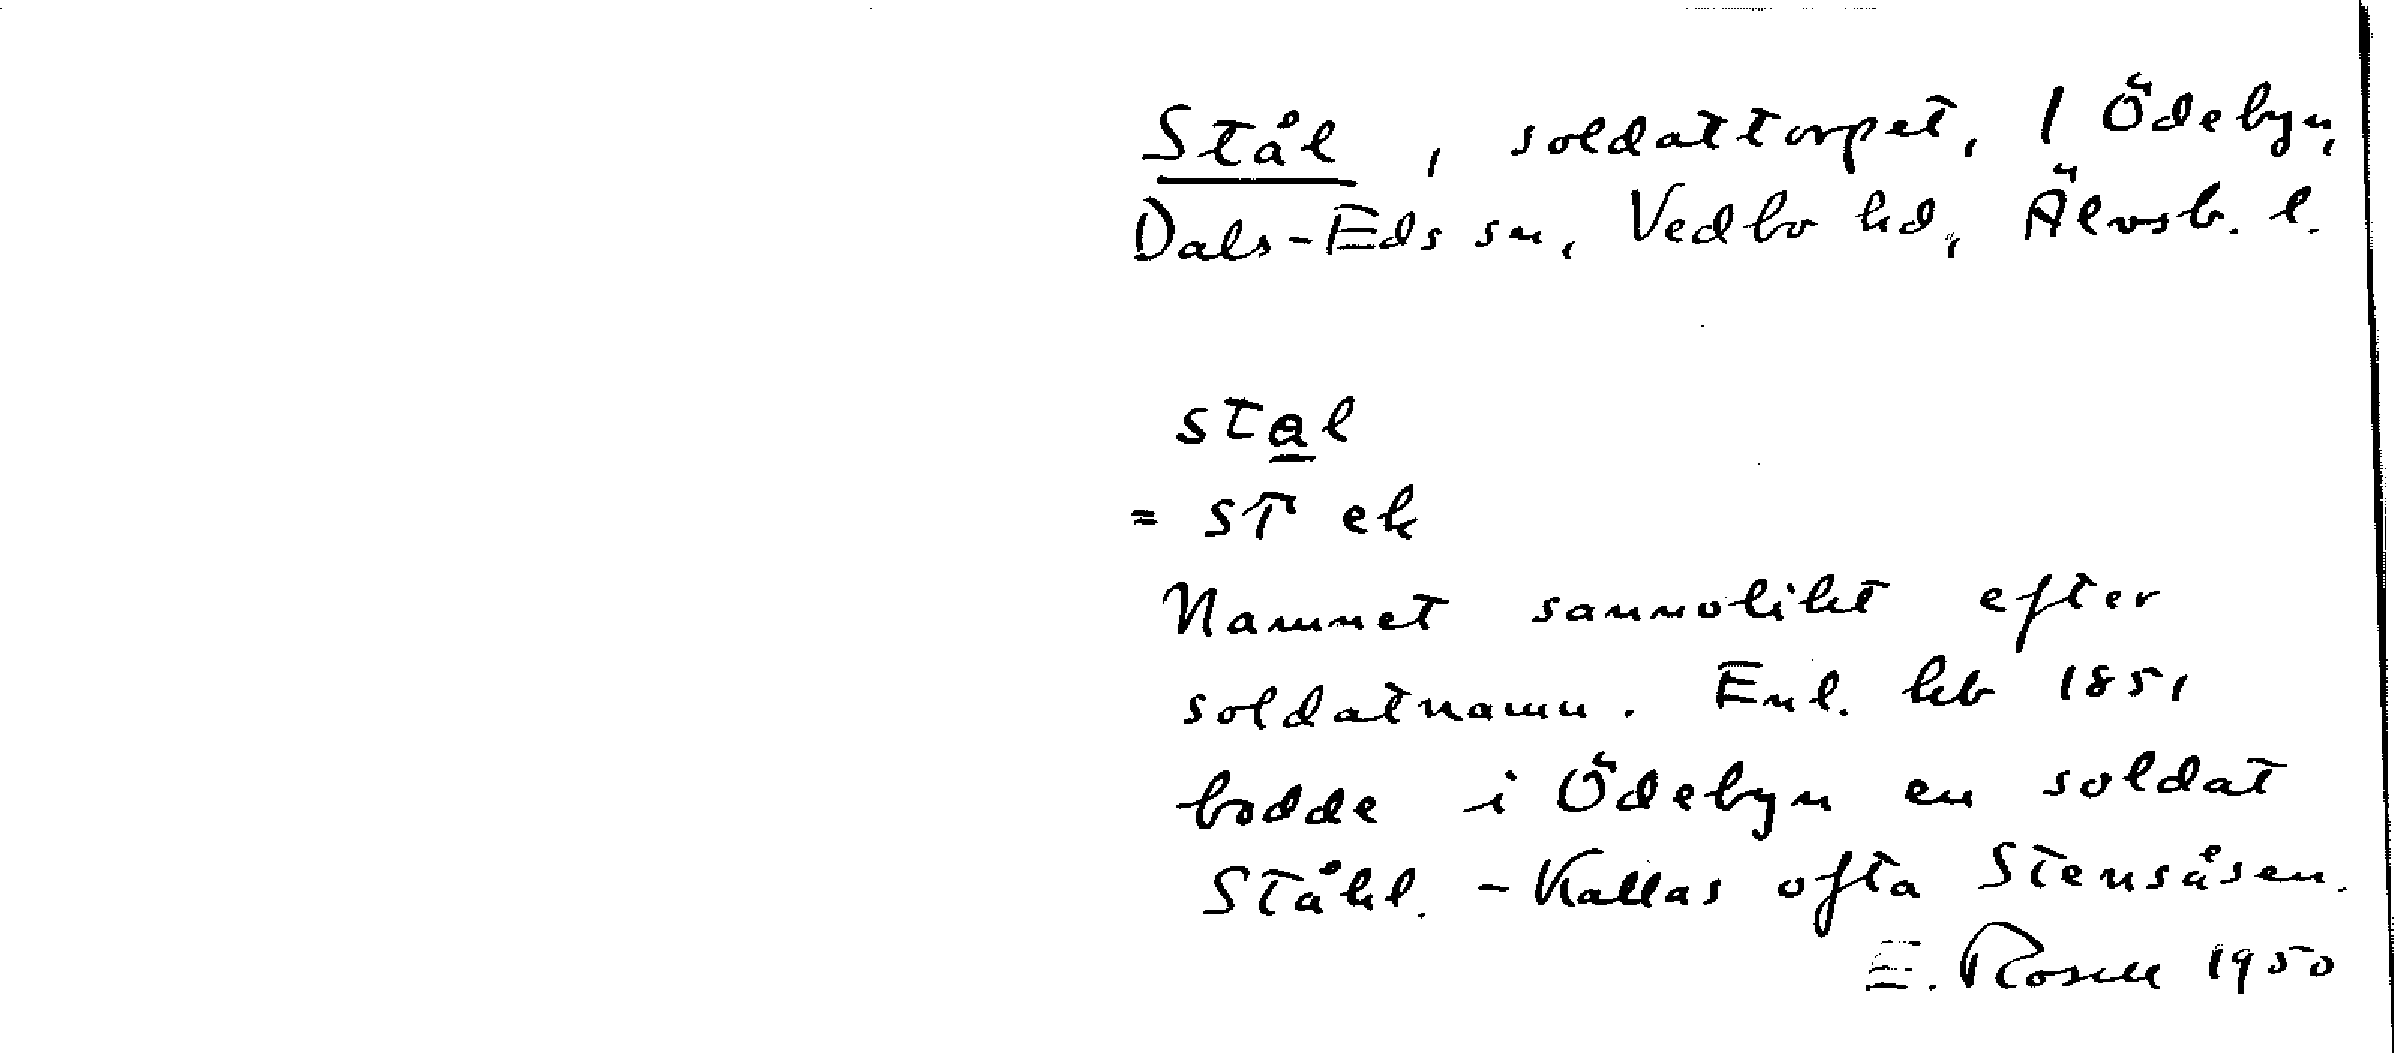 Stål, soldattorpet, 1 Ödebyn,
Dals-Eds sn, Vedbo hd, Älvsb. l.
stal
= ST ek
Namnet sannolikt efter
soldatnamn. Enl. hb 1851
bodde i Ödebyn en soldat
Ståhl. - Kallas ofta Stensåsen.
E. Rosell 1950